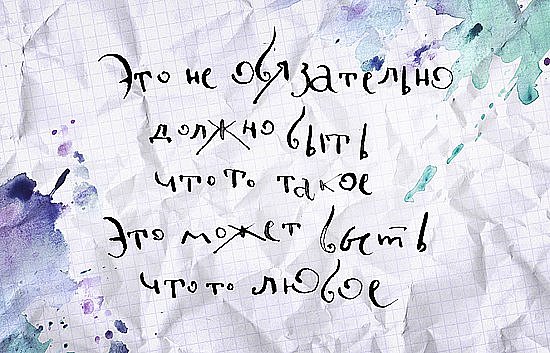 Это не обязательно
должно быть
что то такое
Это может быть
что то любое